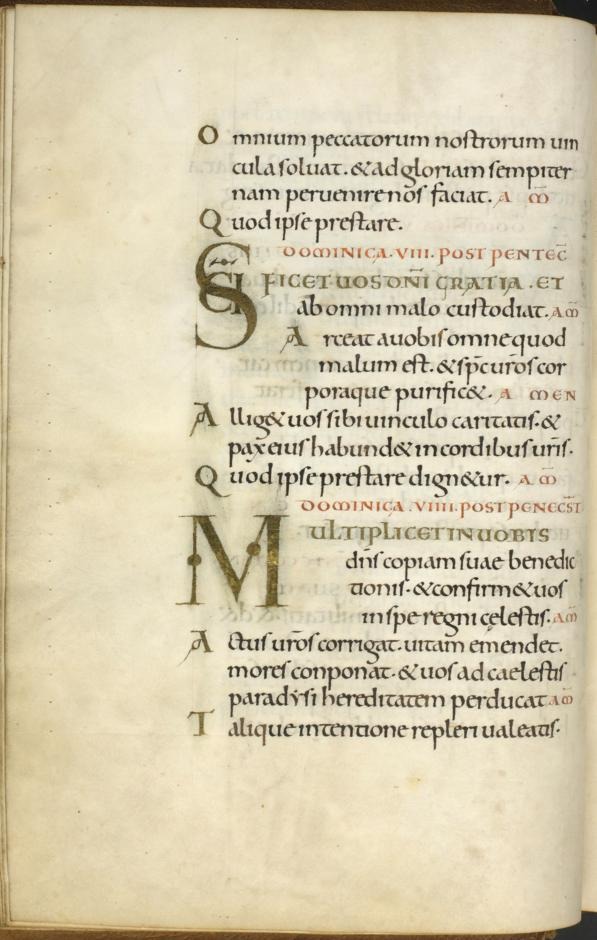 Omnium peccatorum nostrorum uin
cula soluat. & ad gloriam sempiter
nam peruenire nos faciat. A M̄
Quod ipse prestare.
DOMINICA. VIII. POST PENTEC̄
SC̄IFICET UOS DN̄I GRATIA. ET
ab omni malo custodiat. AM̄
Arceat a uobis omne quod
malum est. & sp̄c ur̄os cor
poraque purific&. A MEN
Allig& uos sibi uinculo caritatis. &
pax eius habund& in cordibus ur̄is.
Quod ipse prestare dign&ur. A M̄
DOMINICA. VIIII. POST PENECS̄T
MULTIPLICET IN UOBIS
dn̄s copiam suae benedic
tionis. & confirm& uos
in spe regni cęlestis. AM̄
Actus ur̄os corrigat. uitam emendet.
mores conponat. & uos ad caelestis
paradysi hereditatem perducat AM̄
Talique intentione repleri ualeatis.